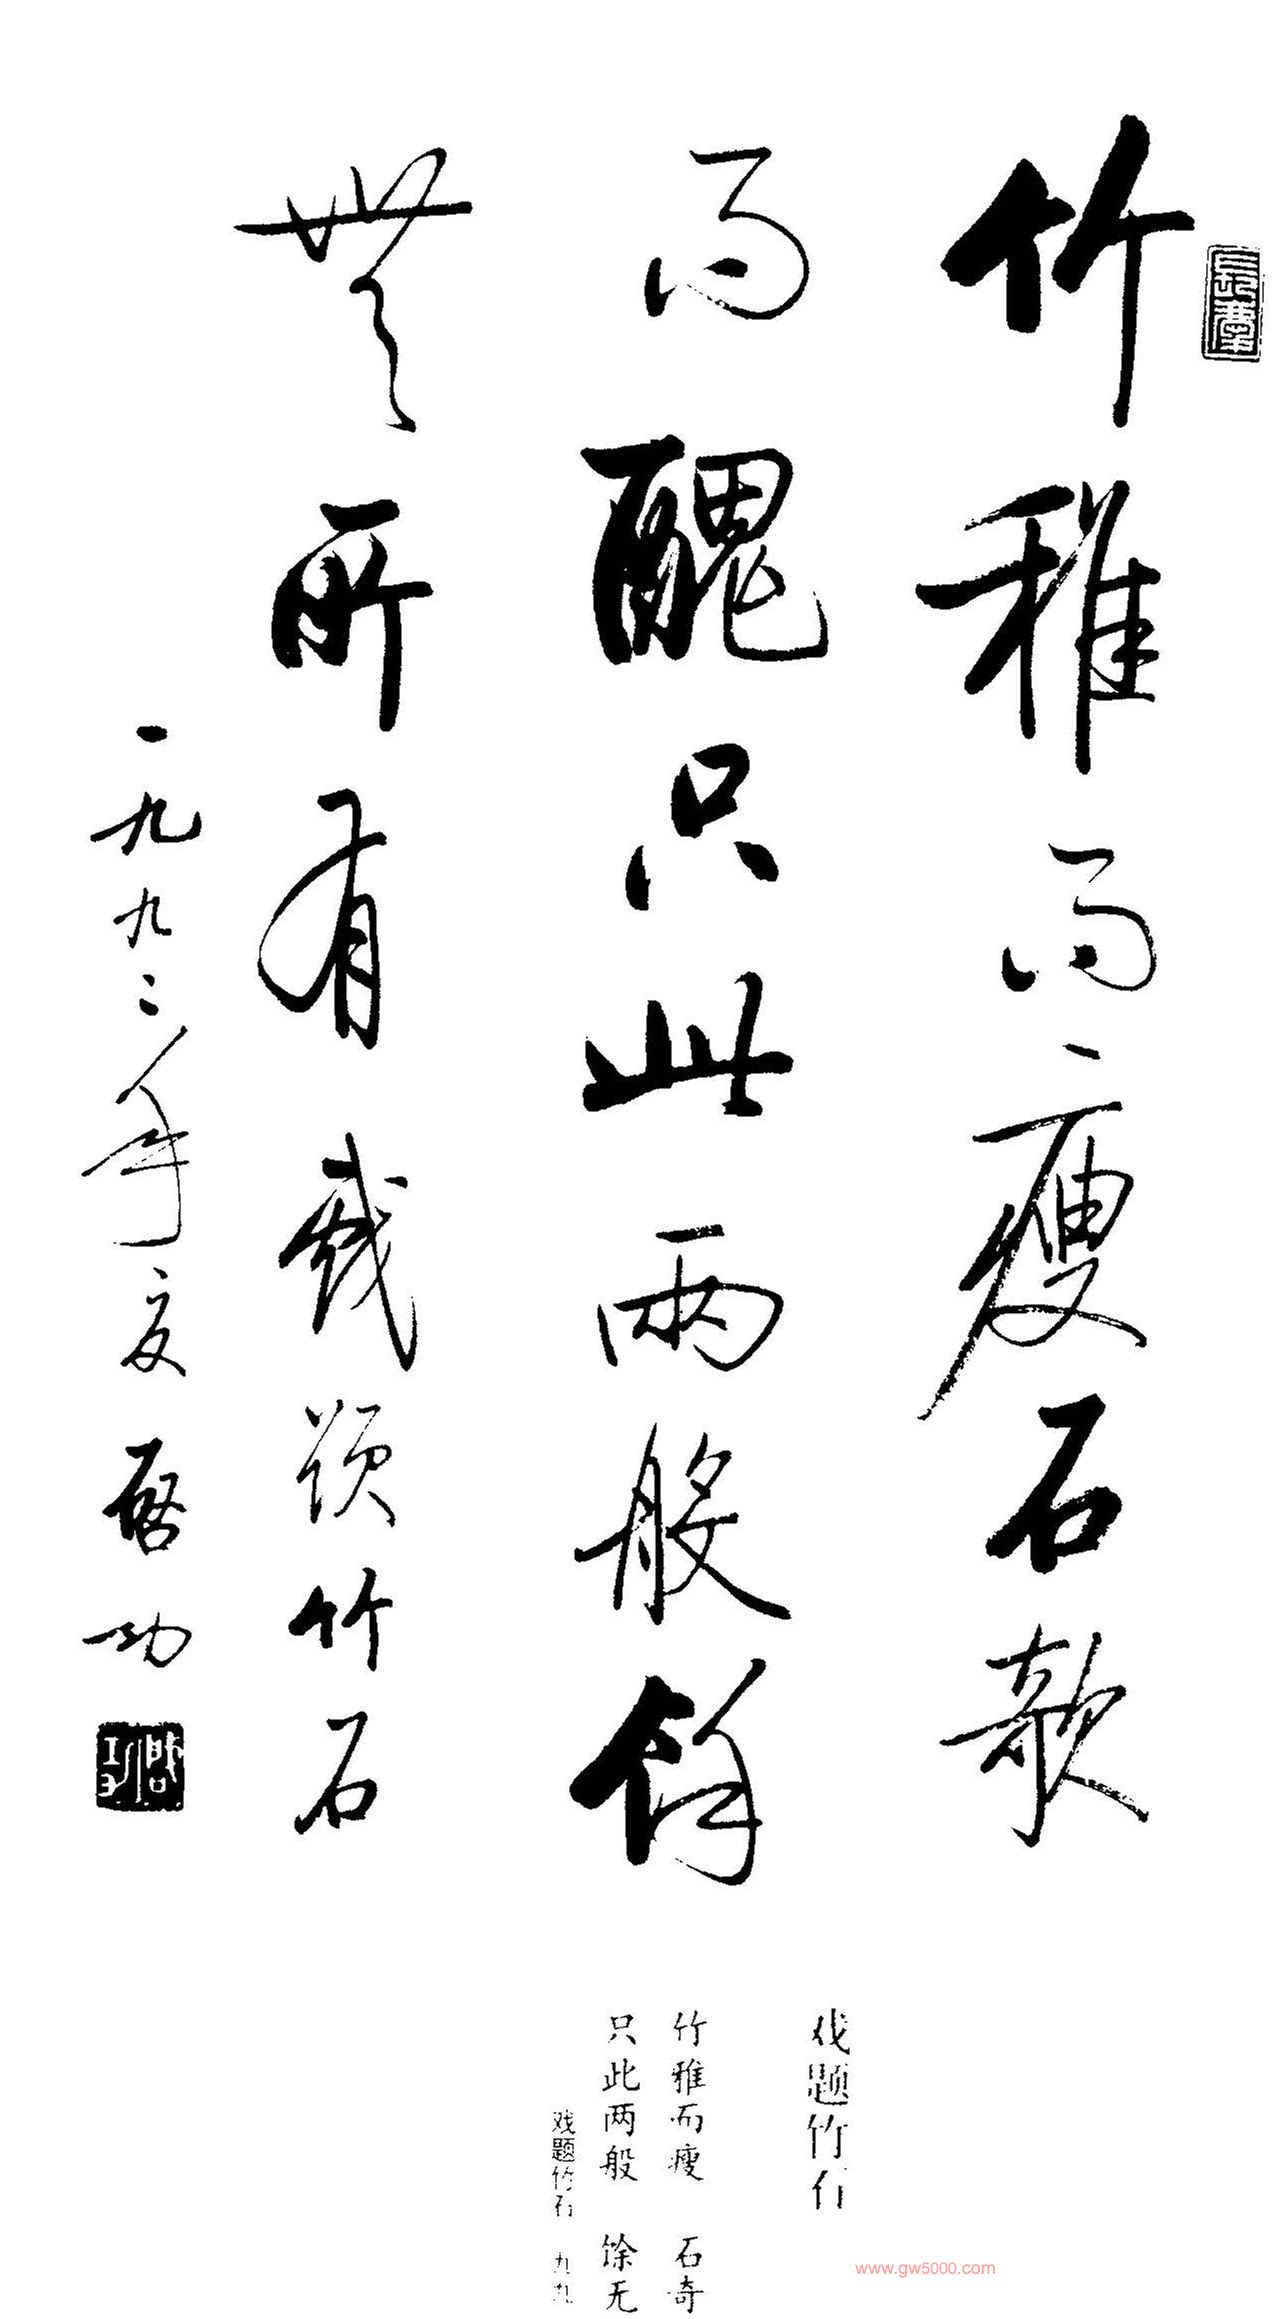 竹雅而瘦石欹
而醜只此兩般餘
無所有戲題竹石
一九九二年夏 啓功
啓功
戏题竹石
竹雅而瘦 石奇
只此两般 馀无
戏题竹石 九九
www.gw5000.com